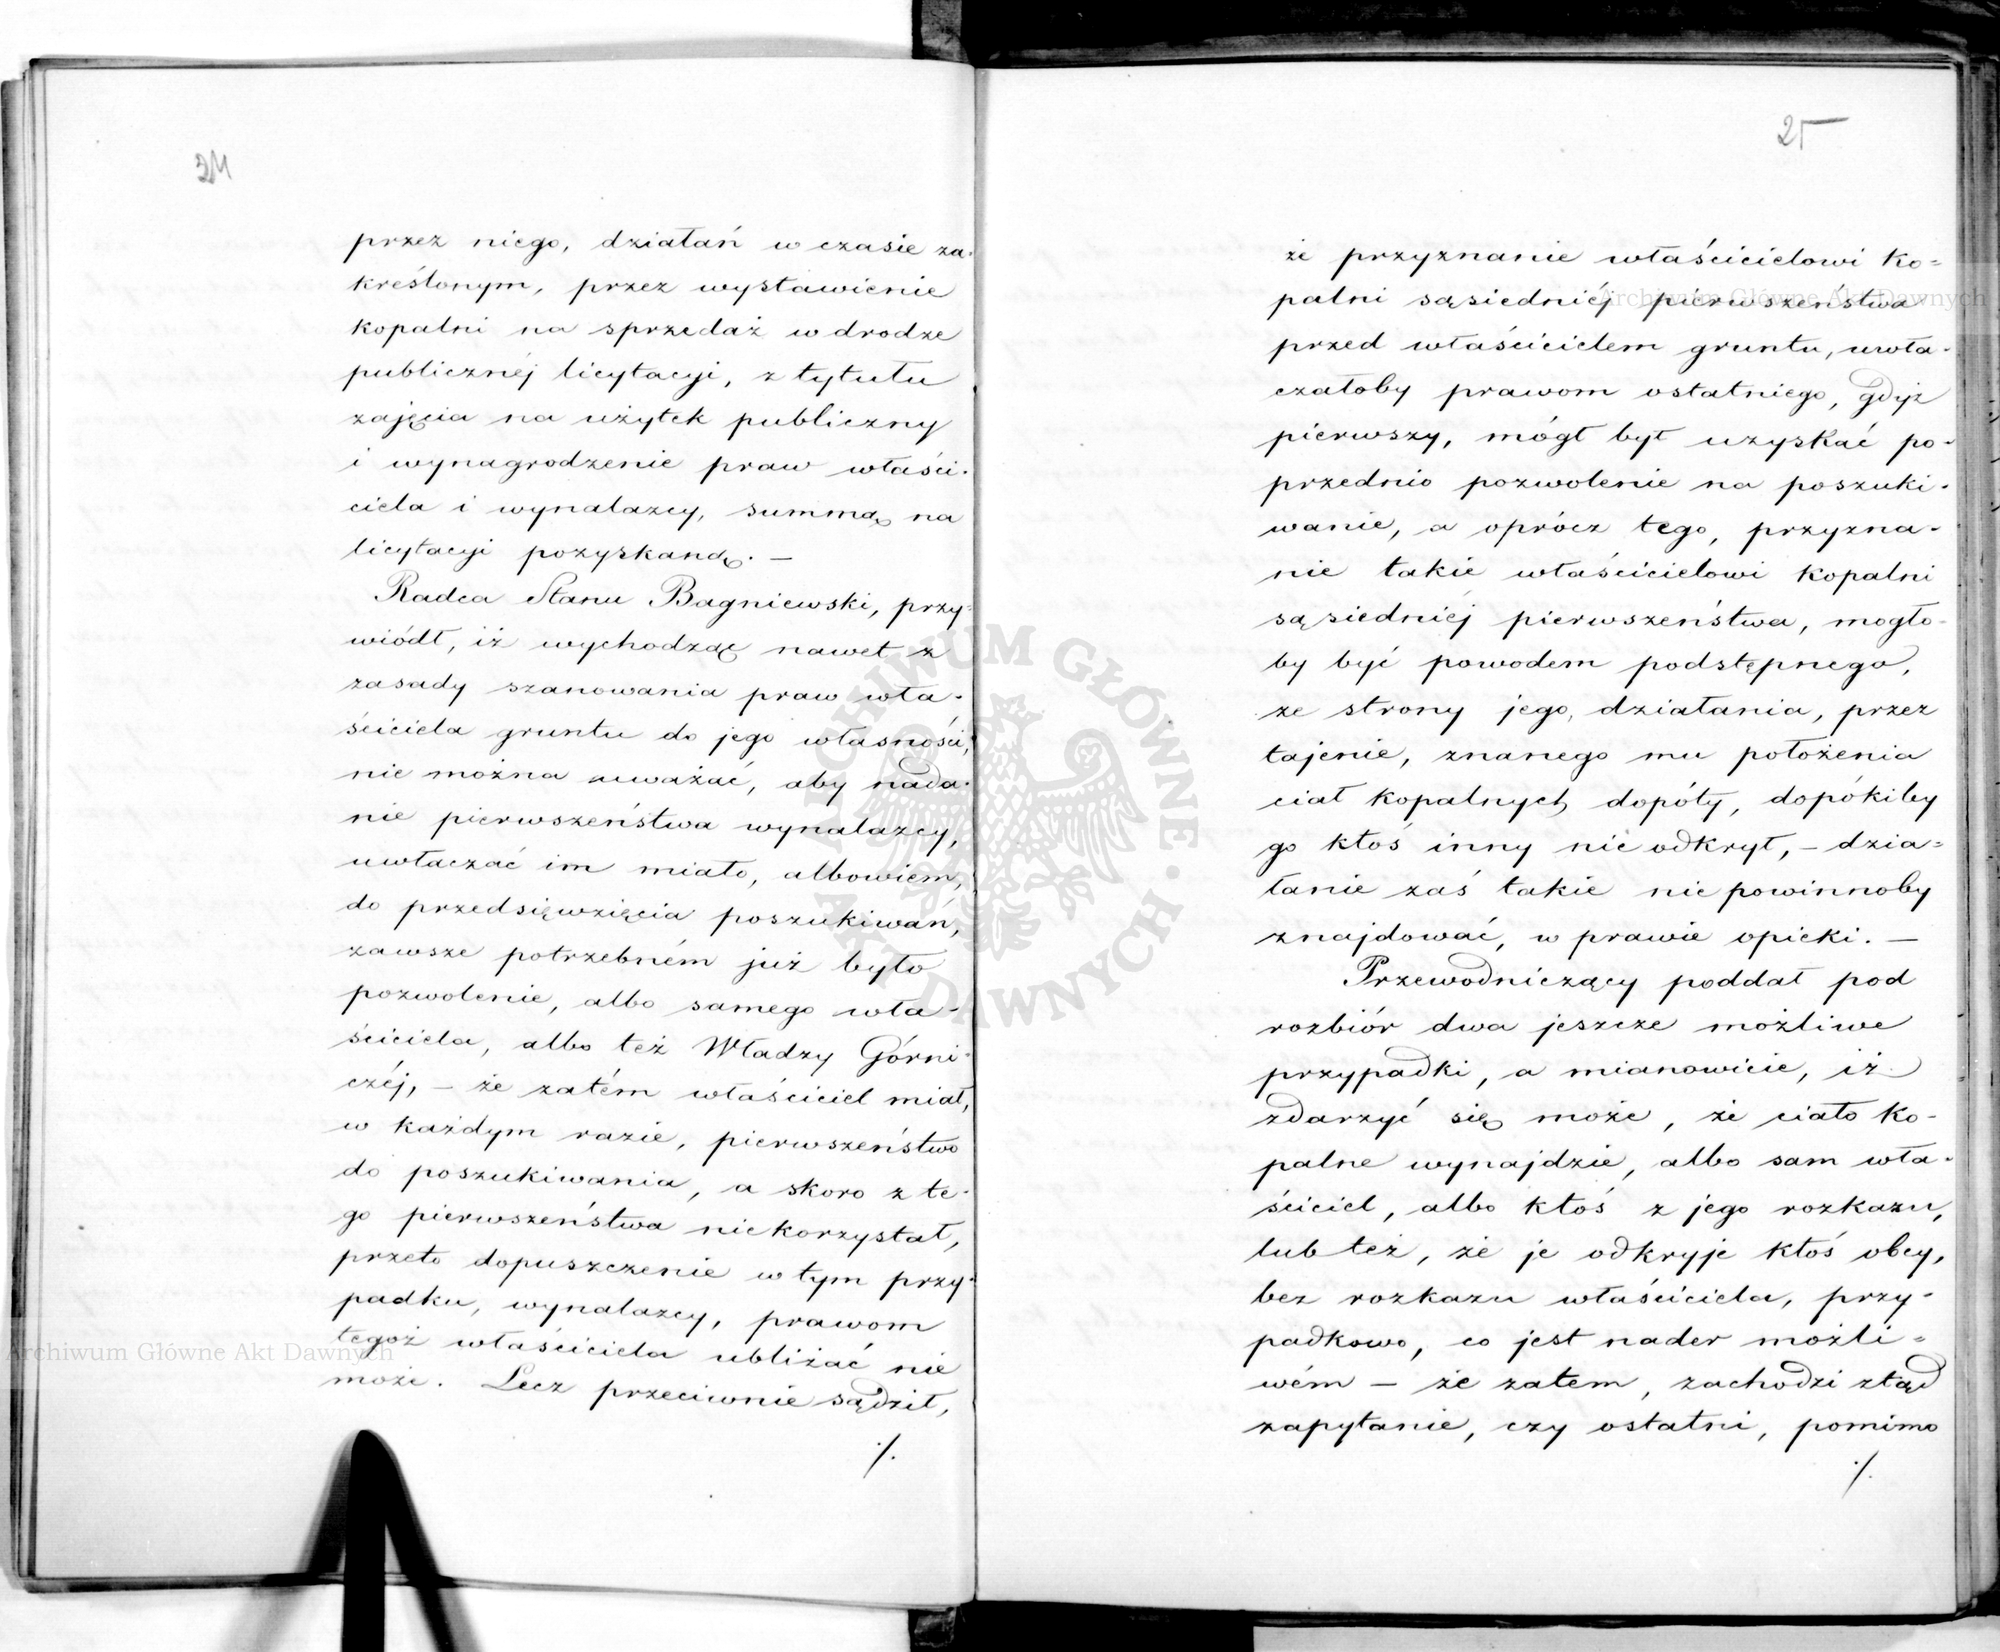 24
przez niego, działań w czasie za-
kreślonym, przez wystawienie
kopalni na sprzedaż w drodze
publicznéj licytacyi, z tytułu
zajęcia na użytek publiczny
i wynagrodzenie praw właści-
ciela i wynalazcy, summą na
licytacyi pozyskaną. —
Radca Stanu Bagniewski, przy-
wiódł, iż wychodząc nawet z
zasady szanowania praw wła-
ściciela gruntu do jego własności,
nie można uważać, aby nada-
nie pierwszeństwa wynalazcy,
uwłaczać im miało, albowiem,
do przedsięwzięcia poszukiwań,
zawsze potrzebném już było
pozwolenie, albo samego wła-
ściciela, albo też Władzy Górni-
czéj, — że zatém właściciel miał,
w każdym razie, pierwszeństwo
do poszukiwania, a skoro z te-
go pierwszeństwa niekorzystał,
przeto dopuszczenie w tym przy-
padku, wynalazcy, prawom
tegoż właściciela ubliżać nie
może. Lecz przeciwnie sądził,
./.
25
że przyznanie właścicielowi ko=
palni sąsiedniéj pierwszeństwa
przed właścicielem gruntu, uwła-
czałoby prawom ostatniego, gdyż
pierwszy, mógł był uzyskać po-
przednio pozwolenie na poszuki-
wanie, a oprócz tego, przyzna-
nie takie właścicielowi kopalni
sąsiedniéj pierwszeństwa, mogło-
by być powodem podstępnego,
ze strony jego, działania, przez
tajenie, znanego mu położenia
ciał kopalnych dopóty, dopókiby
go ktoś inny nie odkrył, — dzia=
łanie zaś takie nie powinnoby
znajdować, w prawie opieki. —
Przewodniczący poddał pod
rozbiór dwa jeszcze możliwe
przypadki, a mianowicie, iż
zdarzyć się może, że ciało ko-
palne wynajdzie, albo sam wła-
ściciel, albo ktoś z jego rozkazu,
lub też, że je odkryje ktoś obcy,
bez rozkazu właściciela, przy-
padkowo, co jest nader możli=
wém — że zatem, zachodzi ztąd
zapytanie, czy ostatni, pomimo
./.
Archiwum Główne Akt Dawnych
Archiwum Główne Akt Dawnych
ARCHIWUM GŁÓWNE AKT DAWNYCH